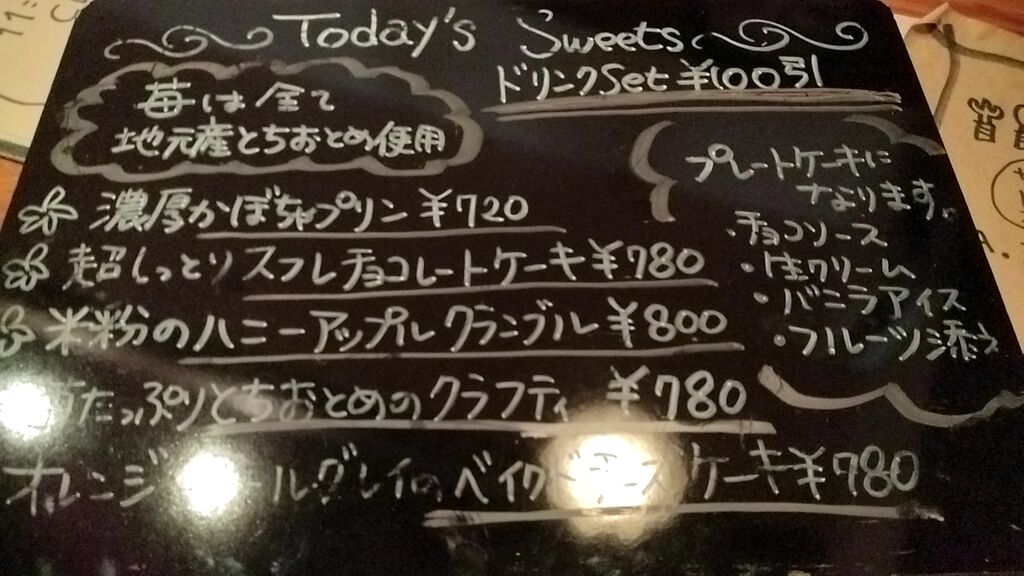 Today's Sweets
ドリンクSet ¥100引
苺は全て
地元産とちおとめ使用
濃厚かぼちゃプリン ¥720
超しっとりスフレチョコレートケーキ ¥780
米粉のハニーアップルクランブル ¥800
たっぷりとちおとめのクラフティ ¥780
オレンジ ールグレイのベイクドチーズケーキ ¥780
プレートケーキに
なります。
・チョコソース
・生クリーム
・バニラアイス
・フルーツ添え